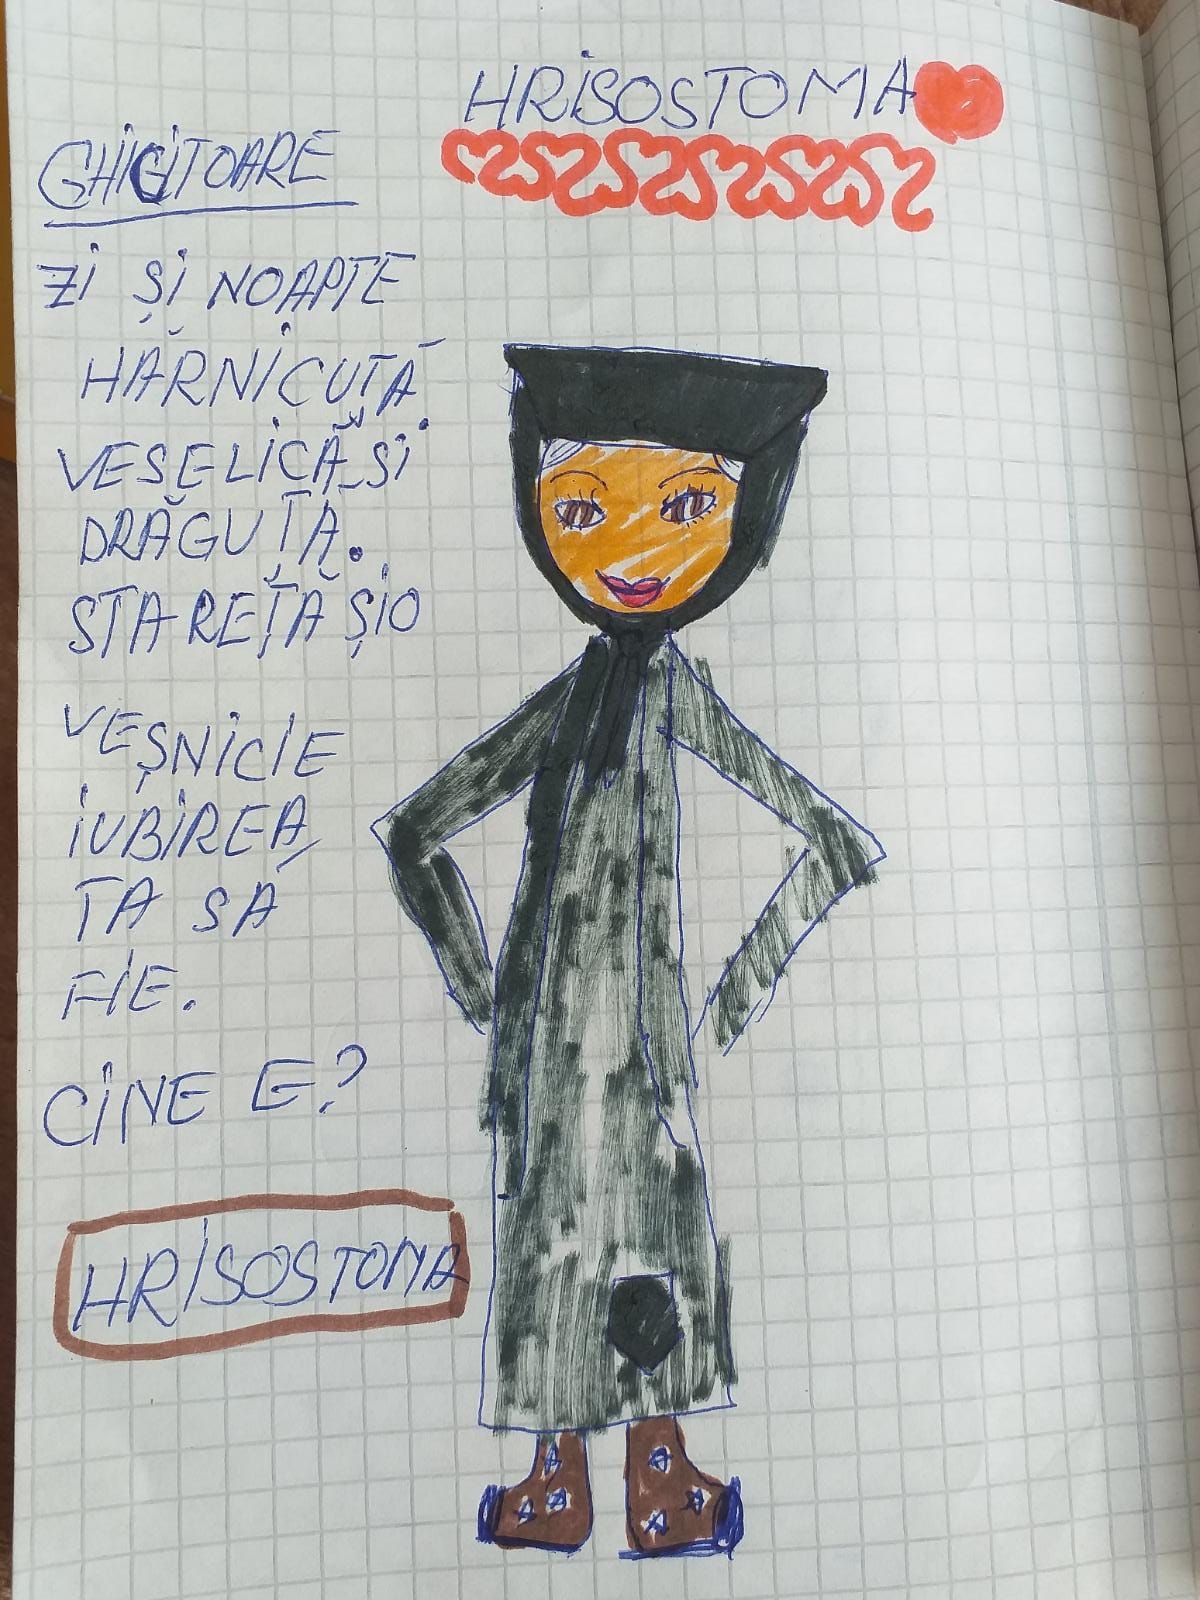 HRISOSTOMA
GHICITOARE
ZI ȘI NOAPTE
HĂRNICUȚĂ
VESELICĂ ȘI
DRĂGUȚĂ.
STAREȚĂ ȘIO
VEȘNICIE
IUBIREA
TA SĂ
FIE.
CINE E?
HRISOSTOMA